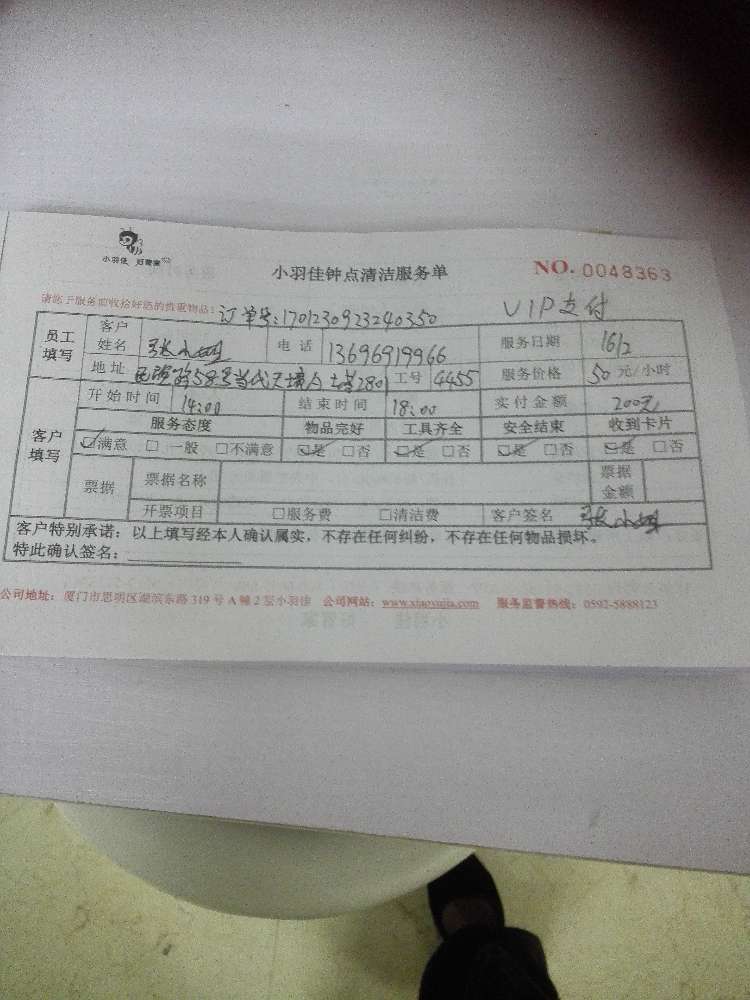 小羽佳 好管家
小羽佳钟点清洁服务单 NO. 0048363
请您于服务前收拾好您的贵重物品! 订单号:1701230923240350 VIP支付
员工填写 客户姓名 张小姐 电话 13696919966 服务日期 16/2
地址 58号当代天境 280 工号 4455 服务价格 50元/小时
开始时间 14:00 结束时间 18:00 实付金额 200元
客户填写 服务态度 物品完好 工具齐全 安全结束 收到卡片
☑满意 □一般 □不满意 ☑是 □否 ☑是 □否 ☑是 □否 ☑是 □否
票据 票据名称 票据金额
开票项目 □服务费 □清洁费 客户签名 张小姐
客户特别承诺：以上填写经本人确认属实，不存在任何纠纷，不存在任何物品损坏。
特此确认签名：
公司地址：厦门市思明区湖滨东路319号A幢2层小羽佳 公司网站：www.xiaoyujia.com 服务监督热线：0592-5888123